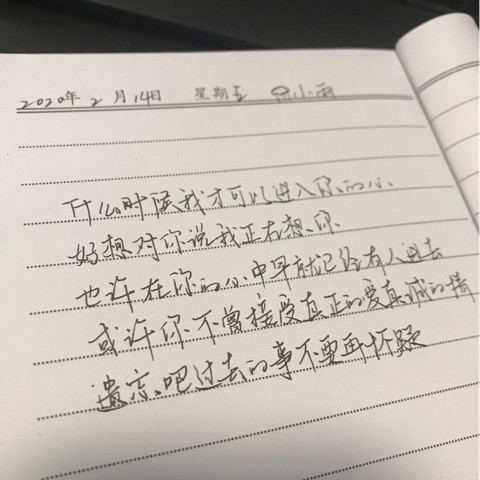 2020年 2月14日 星期五 小雨
什么时候我才可以进入你的心
好想对你说我正在想你
也许在你的心中早就已经有人进去
或许你不曾接受真正的爱真诚的情
遗忘吧过去的事不要再怀疑